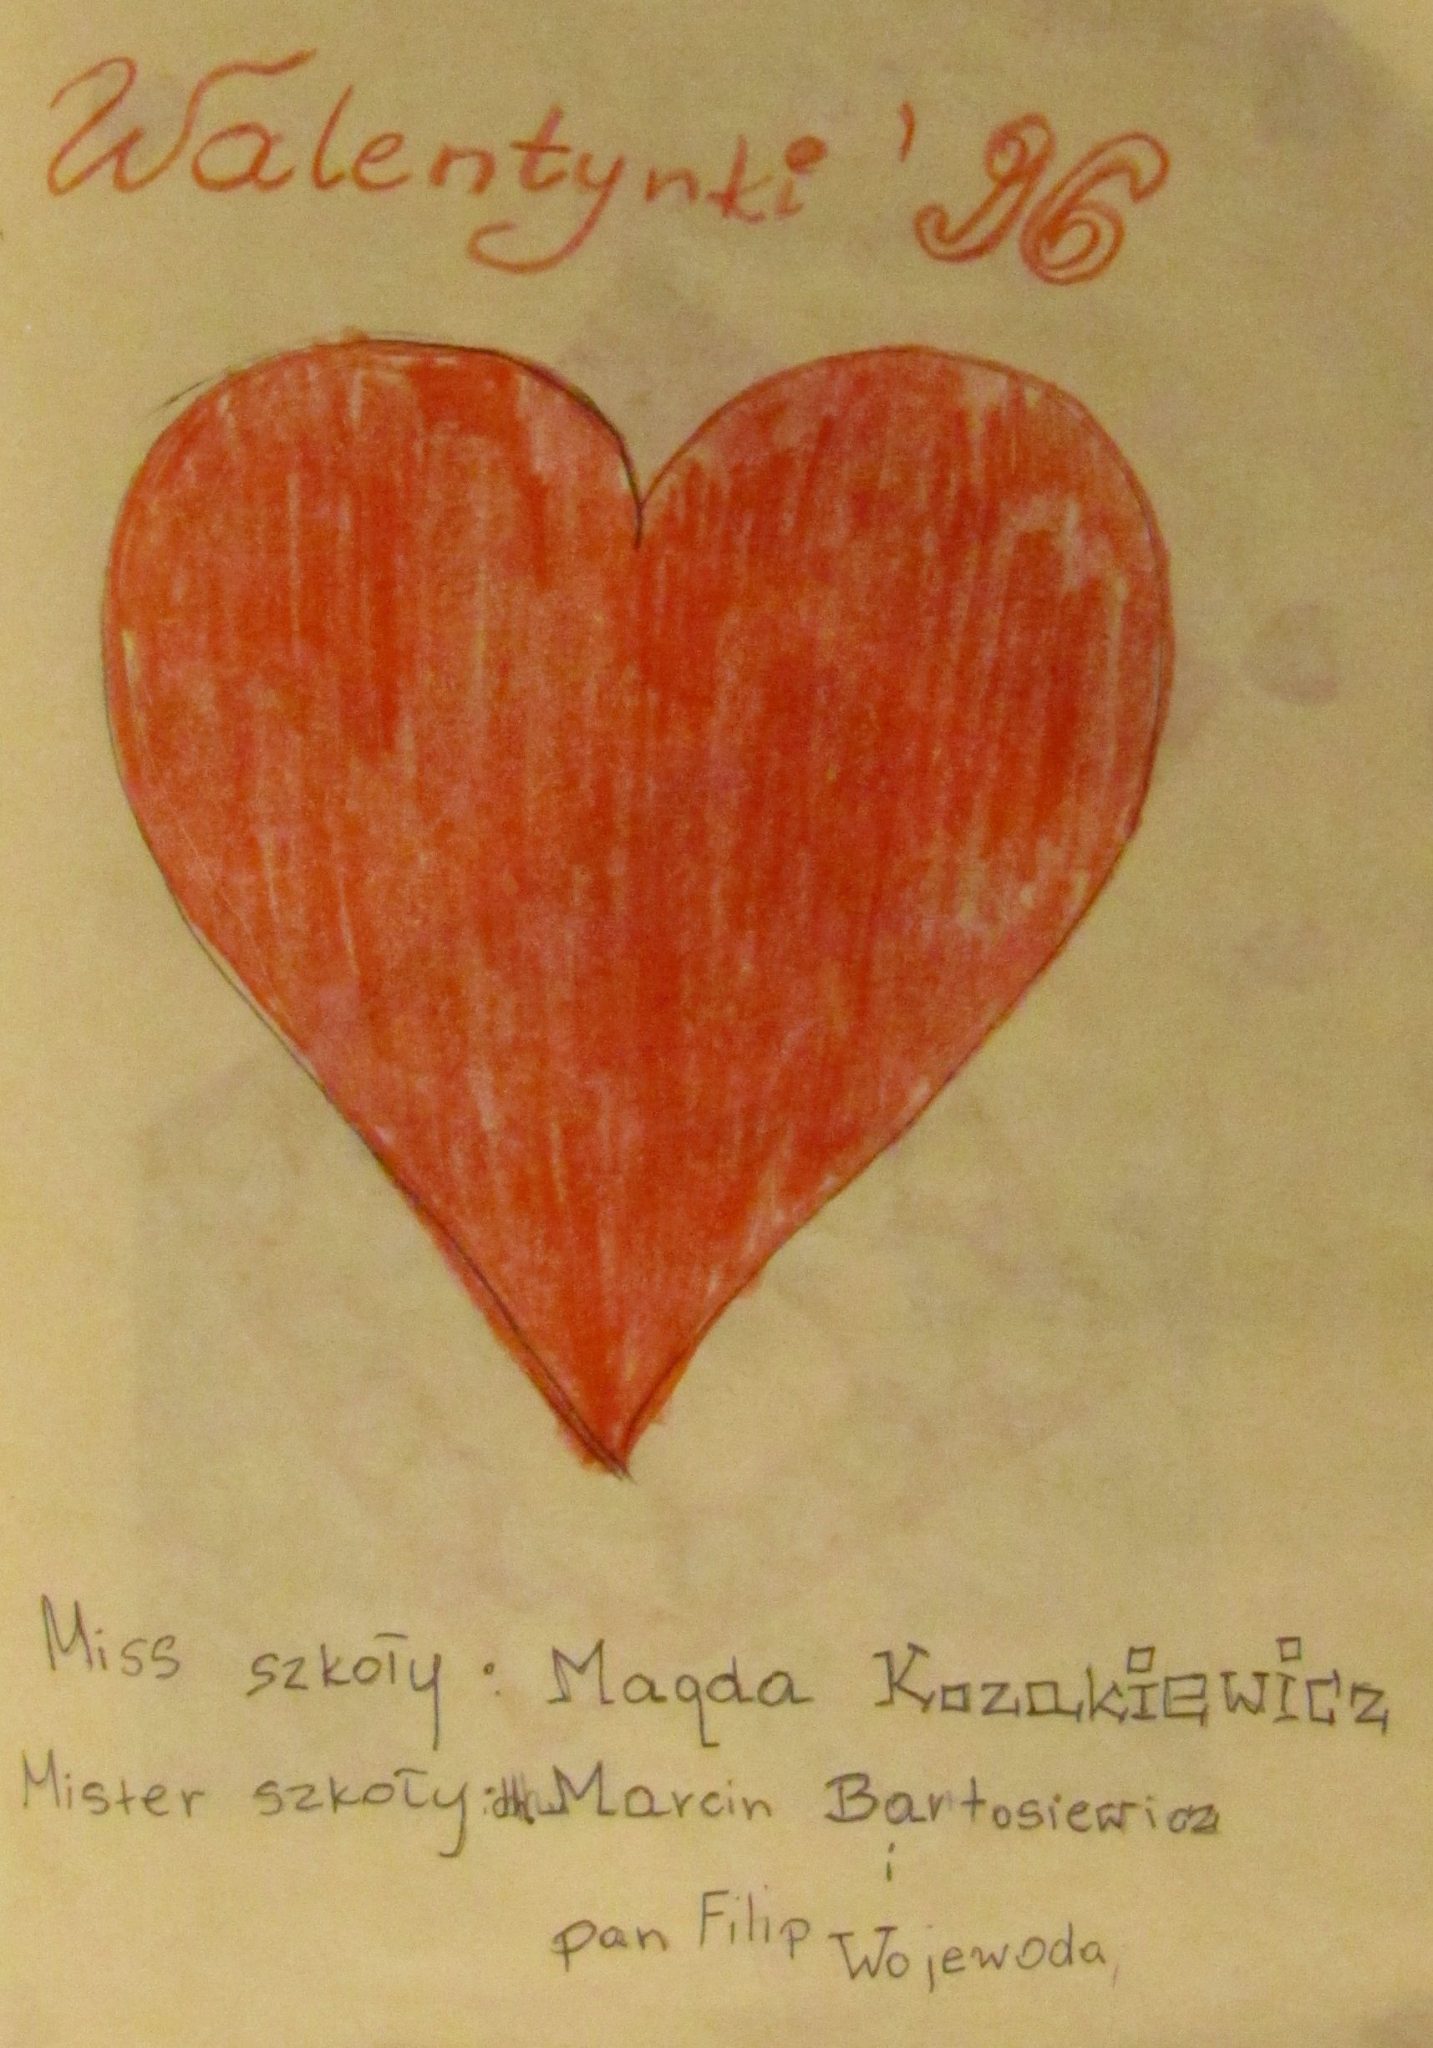 Walentynki '96
Miss szkoły: Magda Kozakiewicz
Mister szkoły: Marcin Bartosiewicz
i
pan Filip Wojewoda